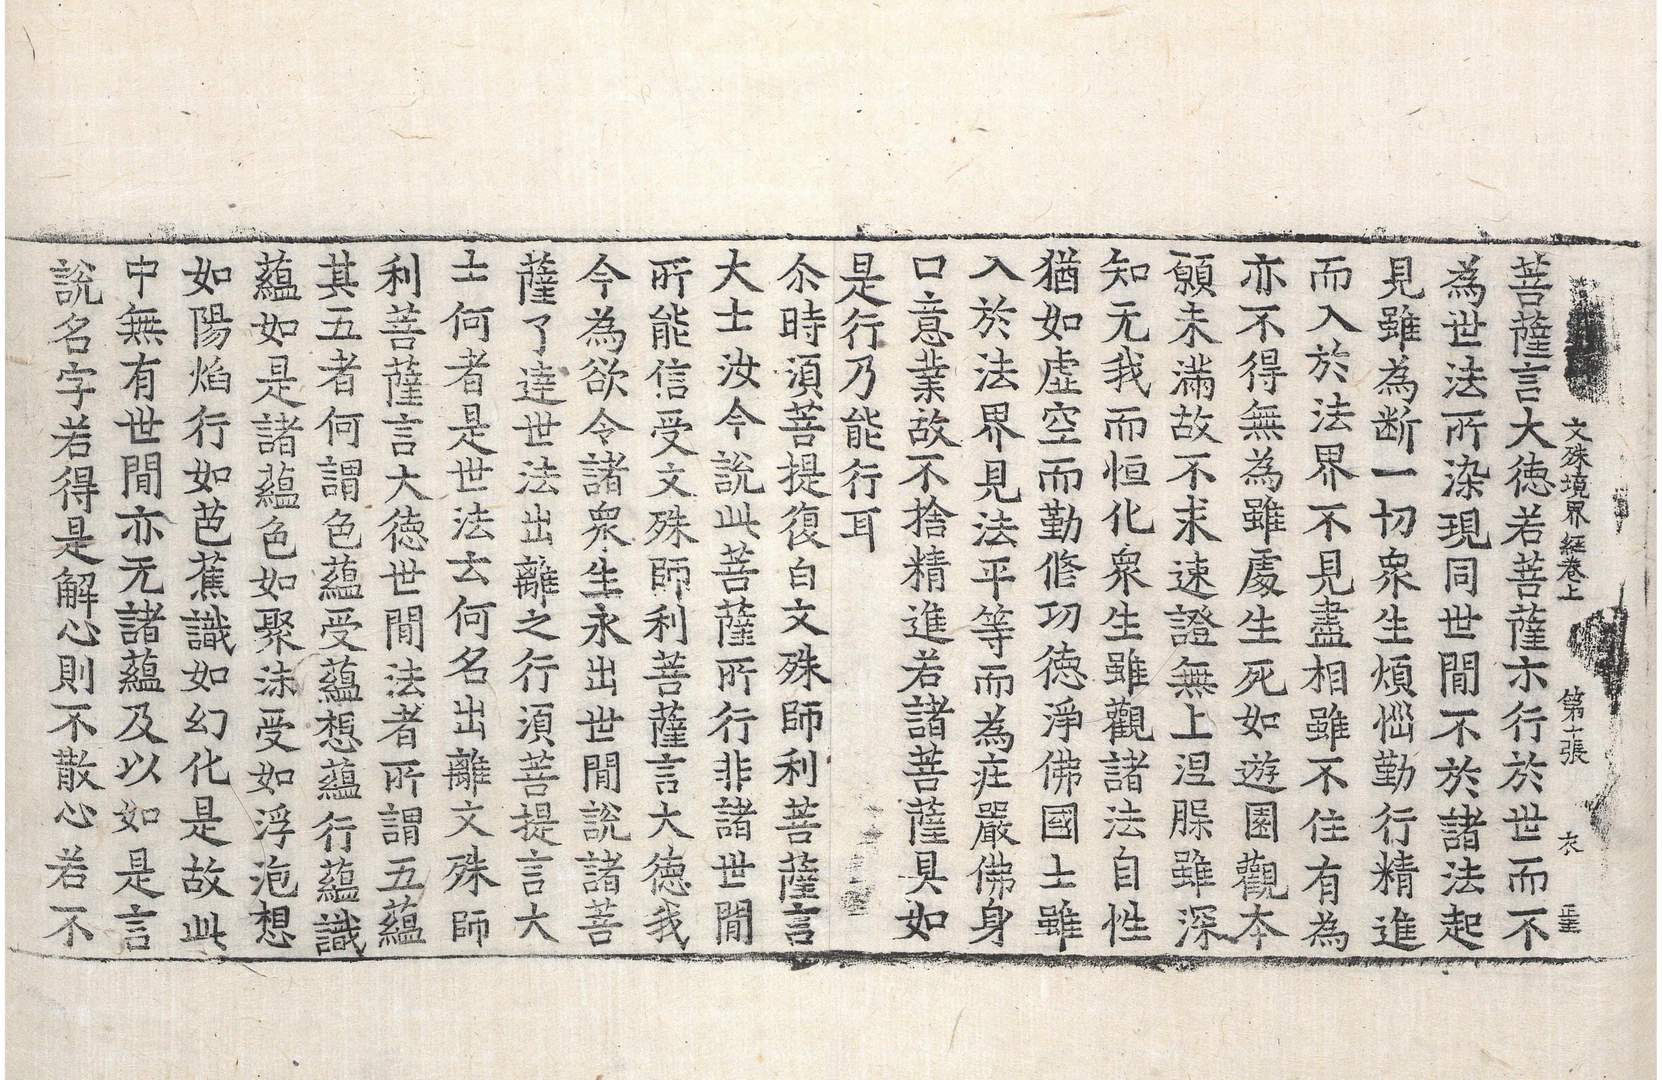 文殊境界經卷上 第十張 衣
菩薩言大徳若菩薩亦行於世而不
為世法所染現同世閒不於諸法起
見雖為断一切衆生煩惱勤行精進
而入於法界不見盡相雖不住有為
亦不得無為雖處生死如遊園觀本
願未滿故不求速證無上涅槃雖深
知无我而恒化衆生雖觀諸法自性
猶如虛空而勤修功徳淨佛國土雖
入於法界見法平等而為莊嚴佛身
口意業故不捨精進若諸菩薩具如
是行乃能行耳
尒時湏菩提復白文殊師利菩薩言
大士汝今說此菩薩所行非諸世閒
所能信受文殊師利菩薩言大徳我
今為欲令諸衆生永出世閒說諸菩
薩了達世法出離之行湏菩提言大
士何者是世法云何名出離文殊師
利菩薩言大徳世閒法者所謂五蘊
其五者何謂色蘊受蘊想蘊行蘊識
蘊如是諸蘊色如聚沫受如浮泡想
如陽焰行如芭蕉識如幻化是故此
中無有世閒亦无諸蘊及以如是言
說名字若得是解心則不散心若不